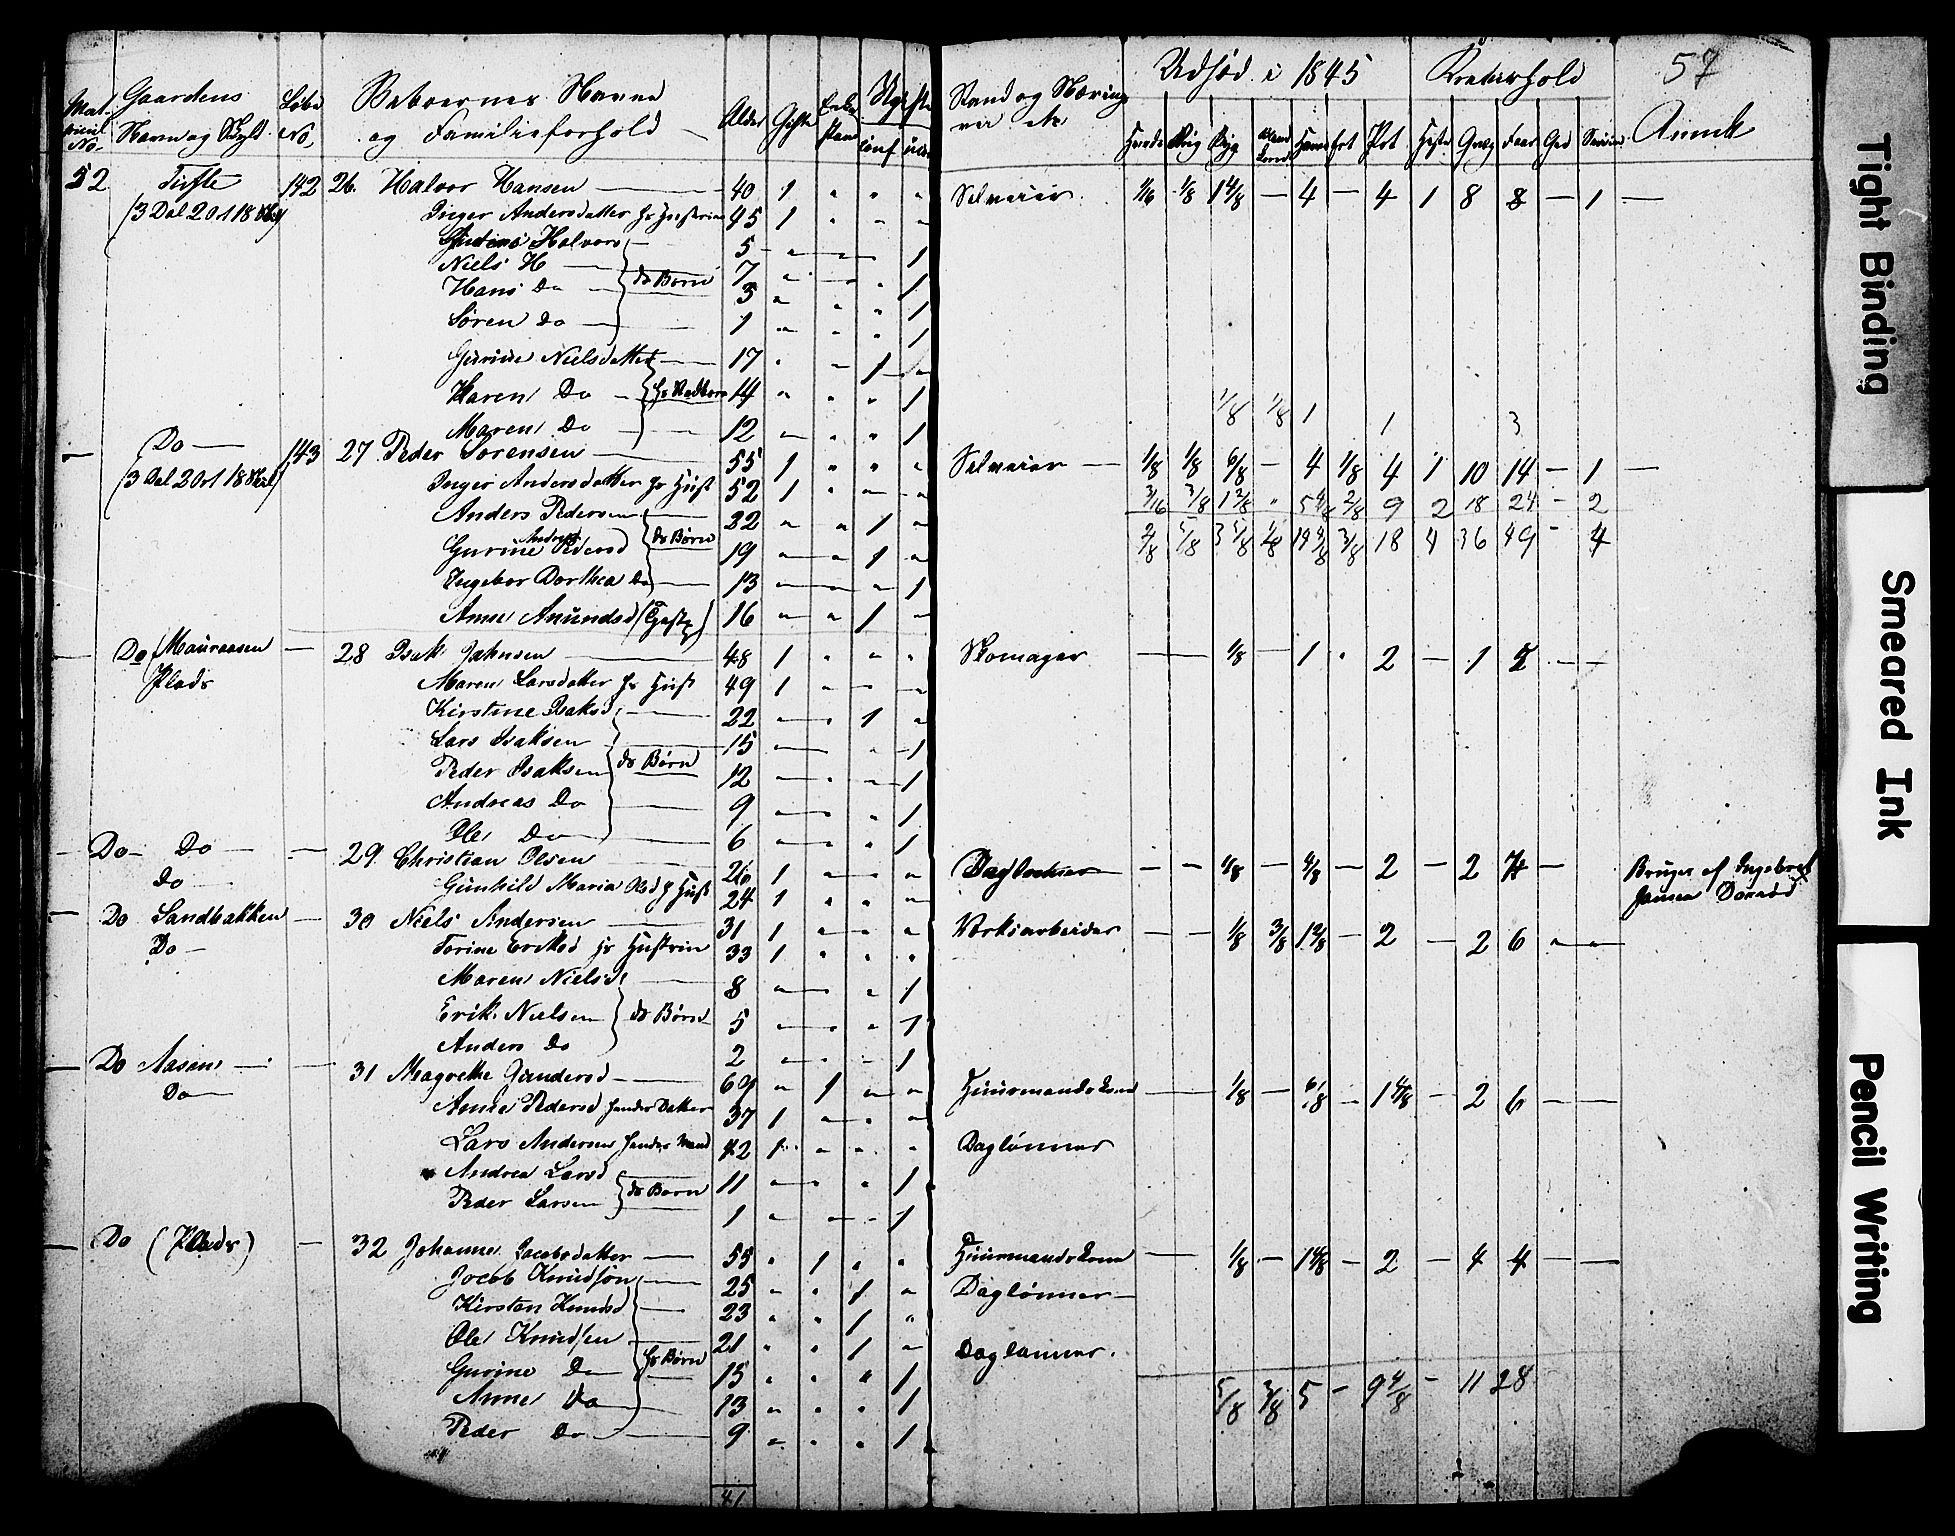 57
Udsæd i 1845 Kreaturhold
Mat. No. Gaardens Navn og Skyld Løbe No. Beboernes Navne og Familieforhold Alder Gifte Enke stand Ugifte conf Stand og Næringsvei Hvede Rug Byg Bland Korn Havre Ert Pot Heste Qvæg Faar Ged Sviin Anmk
52 Tufte 142 26 Halvor Hansen — 40 1 " " " Selveier 1/6 1/8 1 4/8 — 4 — 4 1 8 8 — 1 —
(3 Dal 2 Ort 18 Skil) Inger Andersdatter hs Hustrue 45 1 " " "
Halvors — 5 " " " 1
Niels H — 7 " " " 1
Hans Do — do Børn 3 " " " 1
Søren Do — 1 " " " 1
Gurine Nielsdatter — 17 " " 1 "
Karen Do — hs Stedbørn 14 " " " 1
1/8 1/8 1 1 3
Maren Do — 12 " " " 1
— Do — 143 27 Peder Sørensen — 55 1 " " " Selveier — 1/8 1/8 6/8 — 4 1/8 4 1 10 14 — 1 —
(3 Dal 2 Ort 18 Skil) Inger Andersdatter hs Hust 52 1 " " "
3/16 3/8 1 2/8 " 5 4/8 2/8 9 2 18 24 — 2
Anders Pedersen — 22 " " 1 "
2/8 5/8 3 5/8 4/8 19 4/8 3/8 18 4 36 49 — 4
Andrea
Gurine Pedersd do Børn 19 " " 1 "
Ingebor Dorthea Do — 13 " " " 1
Anne Amundsd 16 " " 1 "
— Do (Mauraasen — 28 Isak Jahnsen — 48 1 " " " Skomager — 1/8 — 1 " 2 — 1 2 — —
Plads Maren Larsdatter hs Hust 49 1 " " "
Kirstine Isaksd — 22 " " 1 "
Lars Isaksen — 15 " " " 1
Peder Isaksen do Børn 12 " " " 1
Andreas Do — 9 " " " 1
Ole Do — 6 " " " 1
— Do — Do — 29 Christian Olsen — 26 1 " " " — — 4/8 — 4/8 — 2 — 2 4 — Bruges af Ingebret
Do — Gunhild Maria hs Hust 24 1 " " " Jansen
— Do Sandbakken — 30 Niels Andersen — 31 1 " " " Værksarbeider — — 1/8 3/8 1 2/8 — 2 — 2 6 — —
Do — Torine Eriksd hs Hustrue 33 1 " " "
Maren Nielsd 8 " " " 1
Erik Nielsen do Børn 5 " " " 1
Anders Do 2 " " " 1
— Do Aasen — 31 Magrethe Gundersd — 69 " 1 " " Huusmandskone — 1/8 — 6/8 — 1 4/8 — 2 6 — —
Do — Anne Pedersd hendes Datter 37 1 " " "
Lars Andersen hendes Mand 42 1 " " " Daglønner
Andrea Larsd — 11 " " " 1
Peder Larsen do Børn 1 " " " 1
— Do (Plads) — 32 Johanne Jacobsdatter — 55 " 1 " " Huusmandskone — 1/8 — 1 4/8 — 2 — 4 4 — —
Jacob Knudsøn — 25 " " 1 " Daglønner —
Kirsten Knudsd — 23 " " 1 "
Ole Knudsen — 21 " " 1 " Daglønner.
Gurine Do hs Børn 15 " " " 1
5/8 3/8 5 — 9 4/8 — 11 28
Anne Do — 13 " " " 1
Peder Do — 9 " " " 1
41
Tight Binding
Smeared Ink
Pencil Writing